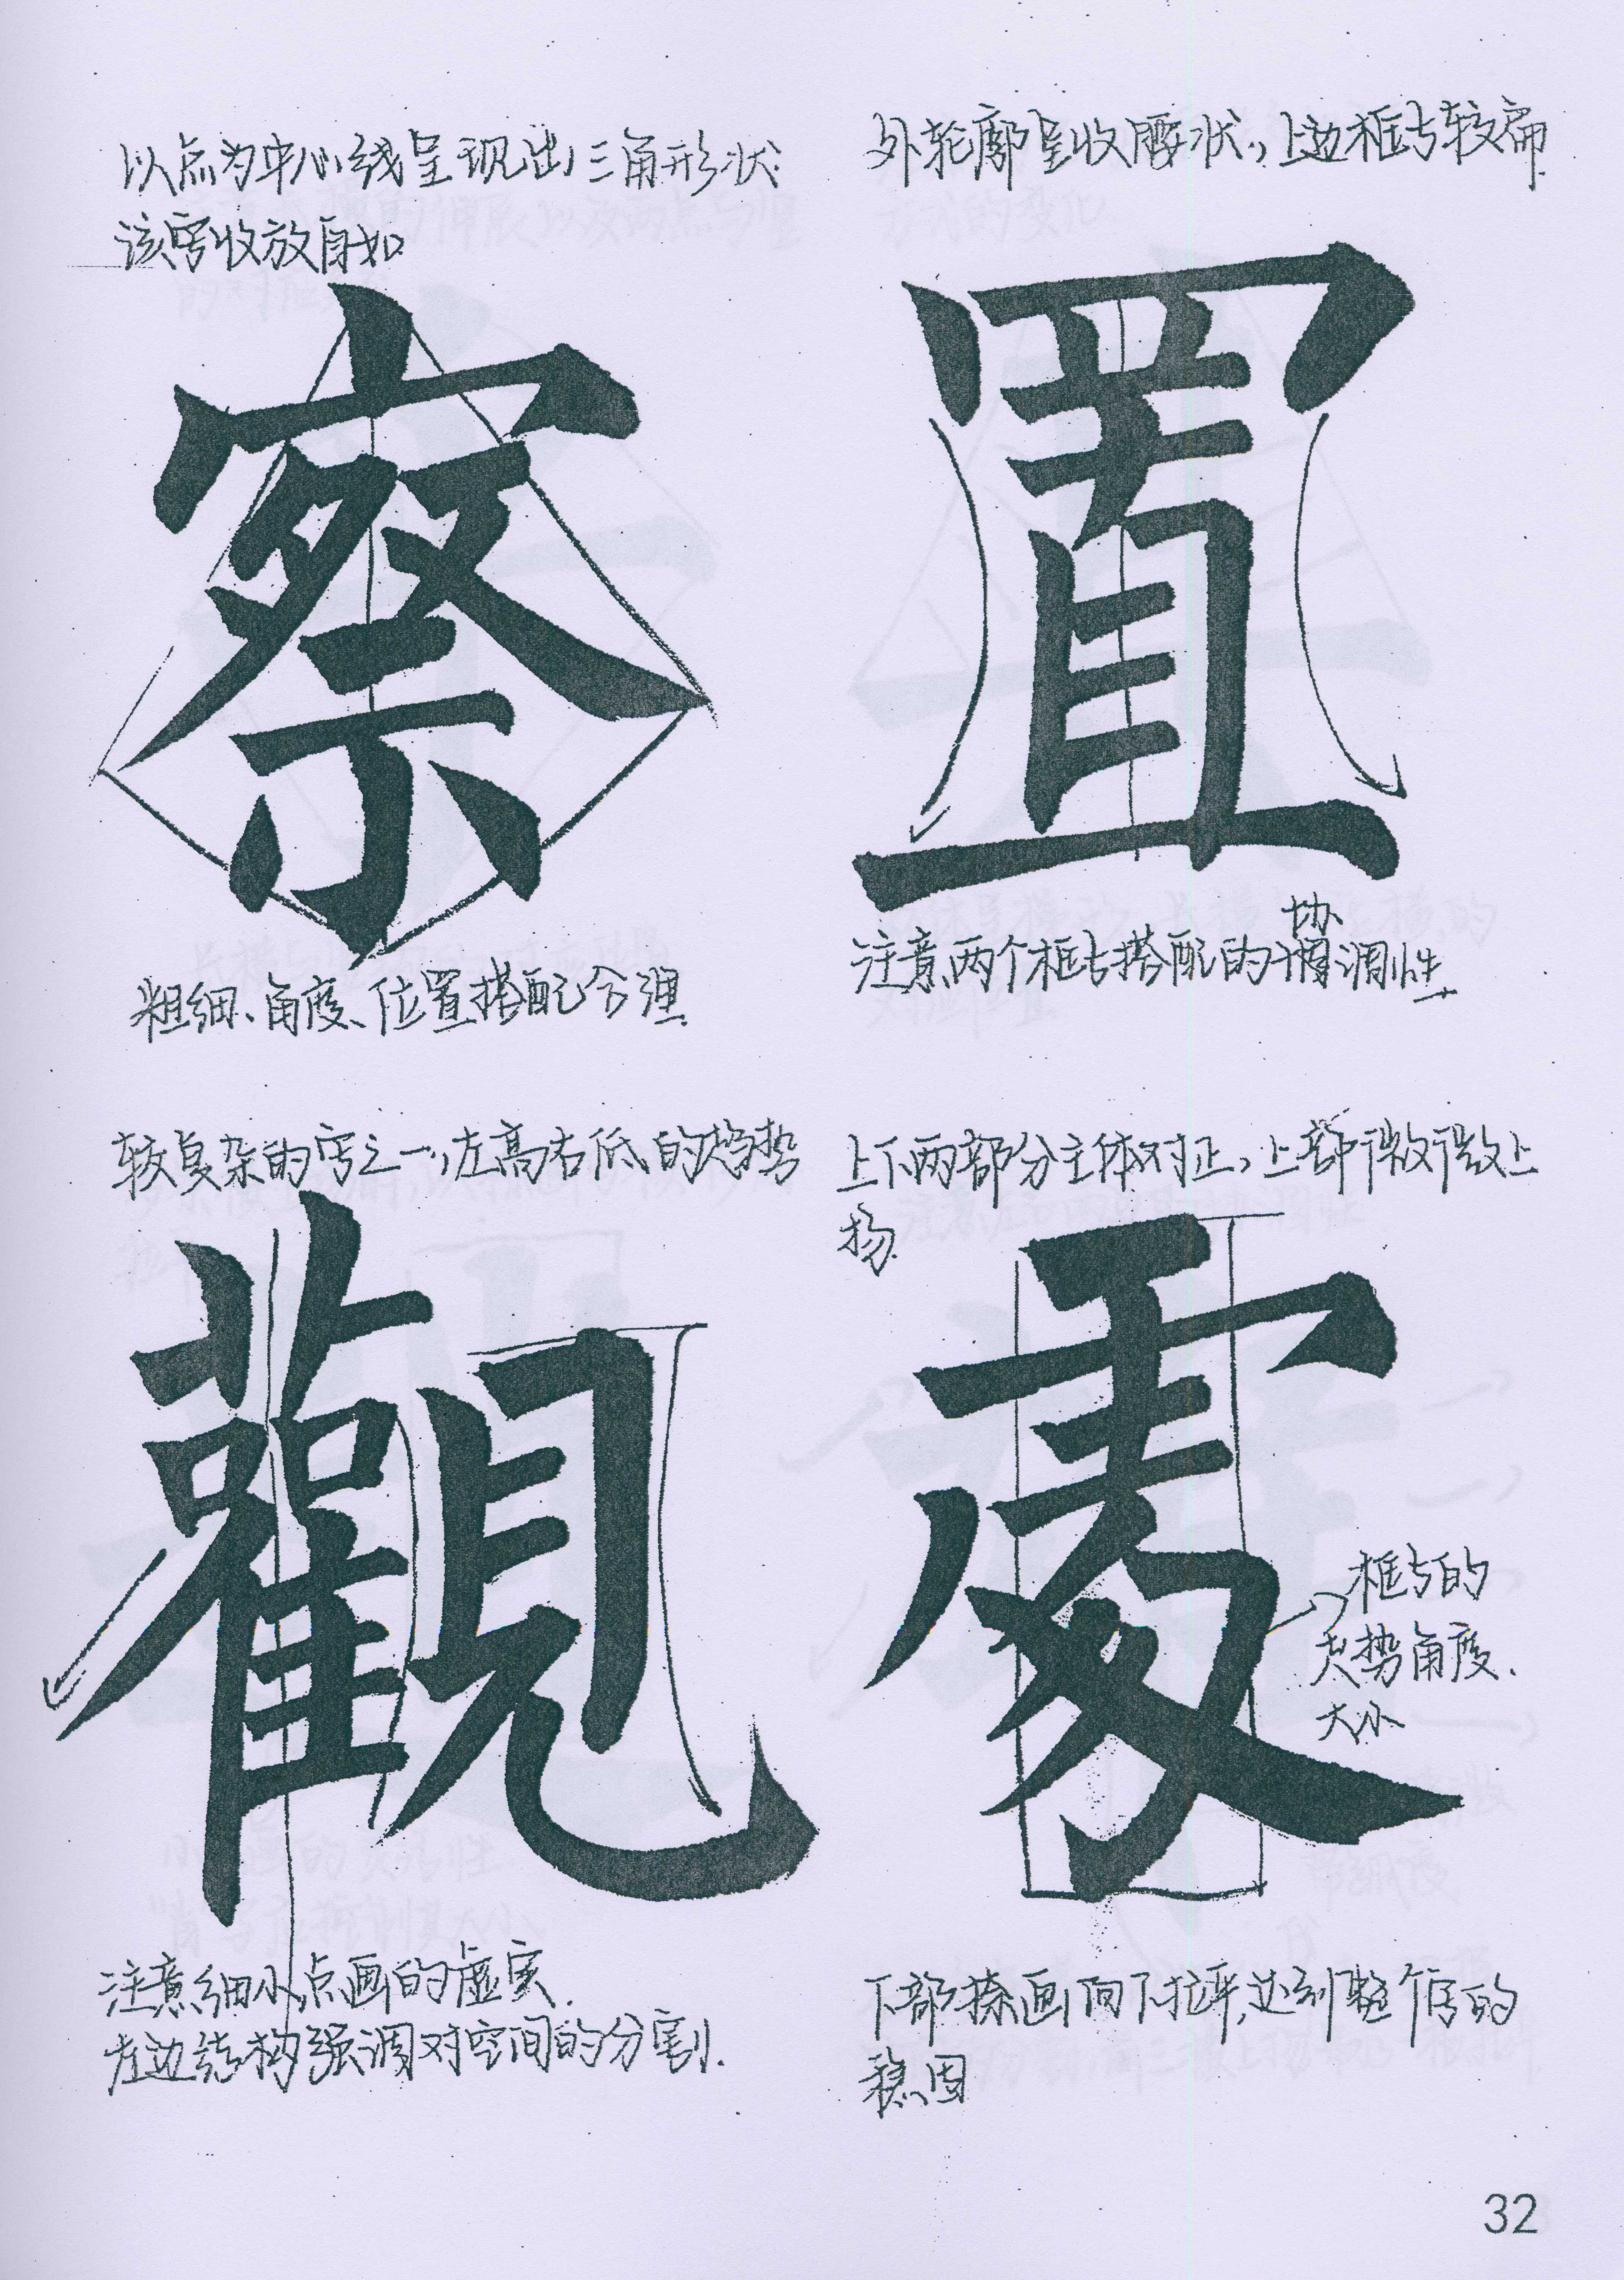 以点为中心线呈现出三角形状
该字收放自如
察
粗细、角度、位置搭配合理.
外轮廓呈收腰状, 上边框与较扁.
置
协
注意两个框与搭配的调性
较复杂的字之一, 左高右低的趋势
觀
注意细小点画的虚实.
左边结构强调对空间的分割.
上下两部分主体对正, 上部微微上
扬.
處
框与的
走势角度.
大小
下部捺画向下拉平, 达到整个字的
稳固
32